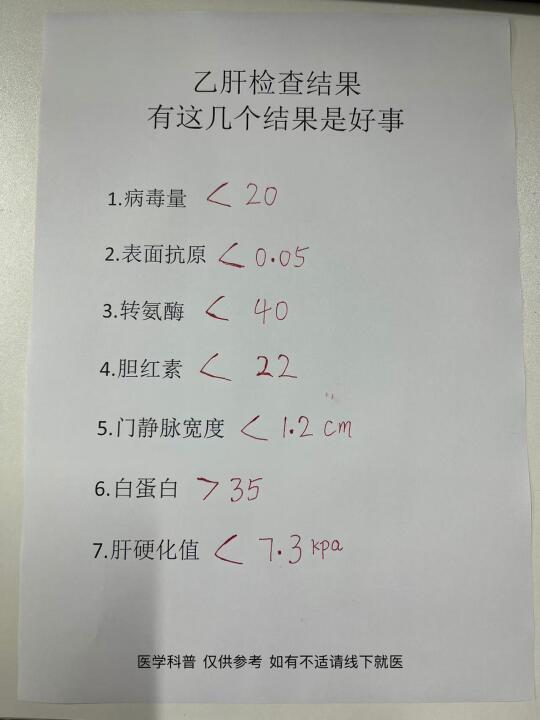 乙肝检查结果
有这几个结果是好事
1.病毒量 < 20
2.表面抗原 < 0.05
3.转氨酶 < 40
4.胆红素 < 22
5.门静脉宽度 < 1.2 cm
6.白蛋白 > 35
7.肝硬化值 < 7.3 kpa
医学科普 仅供参考 如有不适请线下就医